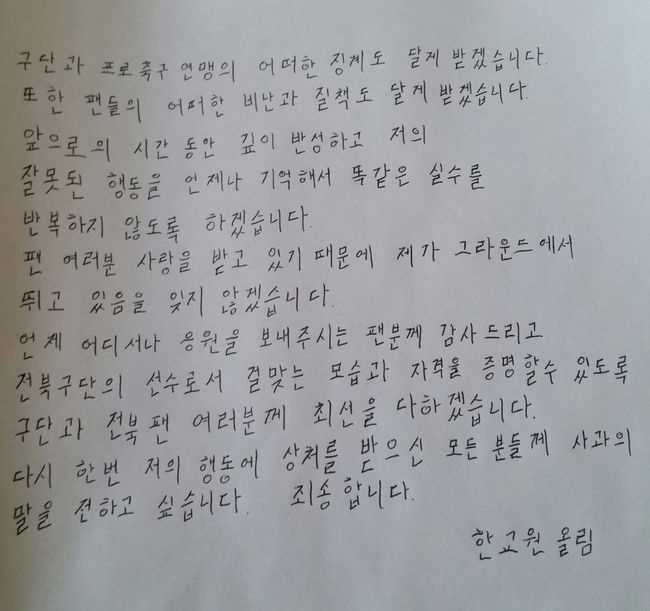 구단과 프로축구 연맹의 어떠한 징계도 달게 받겠습니다.
또한 팬들의 어떠한 비난과 질책도 달게 받겠습니다.
앞으로의 시간 동안 깊이 반성하고 저의
잘못된 행동을 언제나 기억해서 똑같은 실수를
반복하지 않도록 하겠습니다.
팬 여러분 사랑을 받고 있기 때문에 제가 그라운드에서
뛰고 있음을 잊지 않겠습니다.
언제 어디서나 응원을 보내주시는 팬분께 감사드리고
전북구단의 선수로서 걸맞는 모습과 자격을 증명할수 있도록
구단과 전북팬 여러분께 최선을 다하겠습니다.
다시 한번 저의 행동에 상처를 받으신 모든 분들께 사과의
말을 전하고 싶습니다. 죄송합니다.
한교원 올림